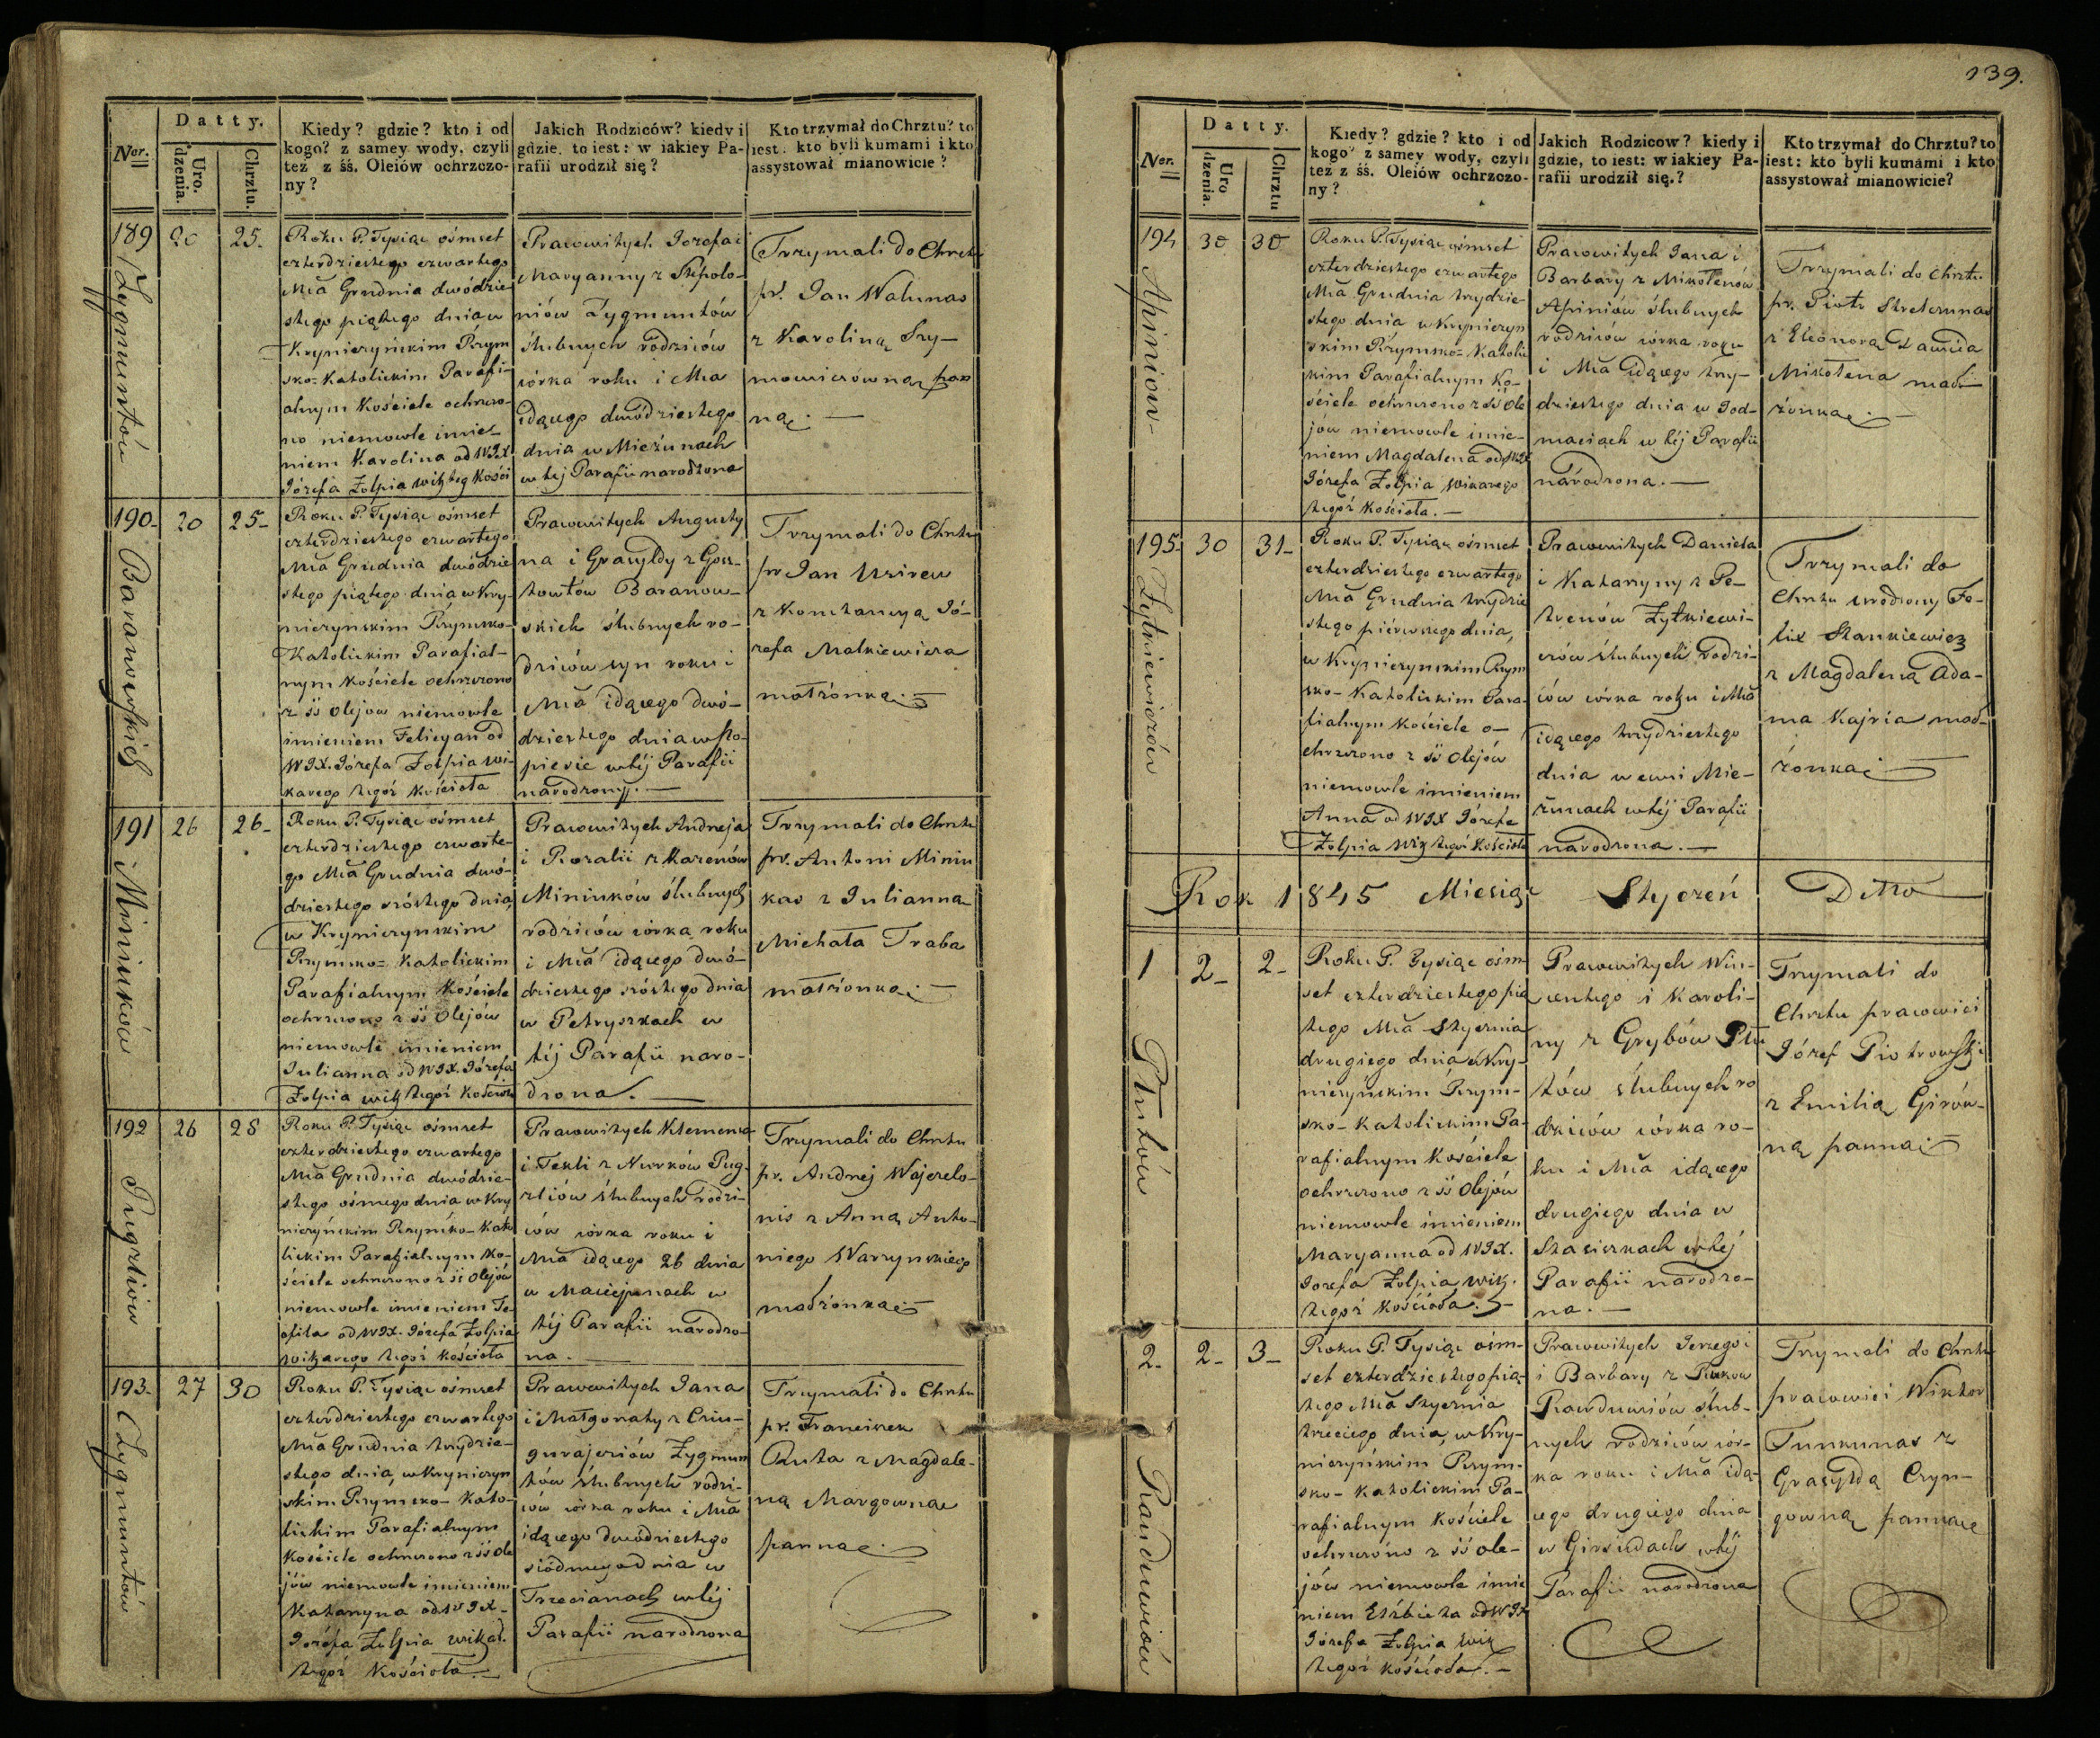 Nor.
Datty.
Uro.
dzenia.
Chrztu.
Kiedy? gdzie? kto i od
kogo? z samey wody, czyli
też z śś. Oleiów ochrzczo-
ny?
Jakich Rodziców? kiedy i
gdzie, to iest: w iakiey Pa-
rafii urodził się?
Kto trzymał do Chrztu? to
iest: kto byli kumami i kto
assystował mianowicie?
189
Zygmuntów
20
25.
Roku P. Tysiąc ośmset
czterdziestego czwartego
Mca Grudnia dwódzie
stego piątego dnia w
Kryniczyńskim Rzym
sko-Katolickim Parafi-
alnym Kościele ochrzczo-
no niemowle imie-
niem Karolina od WJX
Józefa Żołpia wik teg Kości
Prawowitych Jozefa i
Maryanny z Stepolo-
niów Zygmuntów
ślubnych rodziców
córka roku i Mca
idącego dwódziestego
dnia w Mieżunach
w tej Parafii narodzona
Trzymali do Chrztu
pr. Jan Walunas
z Karoliną Szy-
mowiczówną pan
ną.
190
Baranowskich
20
25
Roku P. Tysiąc ośmset
czterdziestego czwartego
Mca Grudnia dwódzie
stego piątego dnia w Kry-
niczynskim Rzymsko-
Katolickim Parafial-
nym Kościele ochrzczono
z śś Olejow niemowle
imieniem Felicyan od
WJX. Józefa Żołpia wi-
karego tegoż Kościoła
Prawowitych Augusty
na i Grasyldy z Gosz-
towtów Baranow-
skich ślubnych ro-
dziców syn roku i
Mca idącego dwó-
dziestego dnia w Po-
piesie w téj Parafii
narodzony.
Trzymali do Chrztu
pr Jan
z Konstancyą Jó-
zefa Malkiewicza
małżonką.
191
Miniuków
26
26
Roku P. Tysiąc ośmset
czterdziestego czwarte-
go Mca Grudnia dwó-
dziestego szóstego dnia,
w Kryniczynskim
Rzymsko-Katolickim
Parafialnym Kościele
ochrzczono z śś Olejów
niemowle imieniem
Julianna od WJX. Józefa
Żołpia wik tegoż Kościoła
Prawowitych Andreja
i Rozalii z Karenów
Miniuków ślubnych
rodziców córka roku
i Mca idącego dwó-
dziestego szóstego dnia
w Petryszkach w
téj Parafii naro-
dzona.
Trzymali do Chrztu
pr. Antoni Miniu
kas z Julianną
Michała Traba
małżonką.
192
Pugzliów
26
28
Roku P. Tysiąc ośmset
czterdziestego czwartego
Mca Grudnia dwódzie-
stego ośmego dnia w Kry
niczyńskim Rzymsko-Kato
lickim Parafialnym Ko-
ściele ochrzczono z śś Olejów
niemowle imieniem Te-
ofila od WJX. Józefa Żołpia
wikarego tegoż Kościoła
Prawowitych Klemensa
i Tekli z Nurków Pug-
zliów ślubnych rodzi-
ców córka roku i
Mca idącego 26 dnia
w Maciejunach w
téj Parafii narodzo-
na.
Trzymali do Chrztu
pr. Andrej Wajczelo-
nis z Anną Anto-
niego Warzynskiego
małżonką
193
Zygmuntów
27
30
Roku P. Tysiąc ośmset
czterdziestego czwartego
Mca Grudnia trzydzie-
stego dnia, w Kryniczyn
skim Rzymsko-Kato-
lickim Parafialnym
Kościele ochrzczono z śś Ole
jów niemowle imieniem
Katarzyna od WJX.
Jozefa Żołpia wikar.
tegoż Kościoła.
Prawowitych Jana
i Małgorzaty z Cziu-
gurajciów Zygmun
tów ślubnych rodzi-
ców córka roku i Mca
idącego dwódziestego
siódmego dnia w
Trzecianach w téj
Parafii narodzona
Trzymali do Chrztu
pr. Franciszek
z Magdale-
ną Margowną
panną.
139.
Nor.
Datty.
Uro
dzenia.
Chrztu
Kiedy? gdzie? kto i od
kogo? z samey wody, czyli
też z śś. Oleiów ochrzczo-
ny?
Jakich Rodzicow? kiedy i
gdzie, to iest: w iakiey Pa-
rafii urodził się.?
Kto trzymał do Chrztu? to
iest: kto byli kumami i kto
assystował mianowicie?
194
Apiniów
30
30
Roku P. Tysiąc ośmset
czterdziestego czwartego
Mca Grudnia trzydzie-
stego dnia w Kryniczyn
skim Rzymsko-Katolic
kim Parafialnym Ko-
ściele ochrzczono z śś Ole
jów niemowle imie-
niem Magdalena od WJX
Józefa Żołpia wikarego
tegoż Kościoła.
Prawowitych Jana i
Barbary z Mikołenów
Apiniów ślubnych
rodziców córka roku
i Mca idącego trzy-
dziestego dnia w Jod-
maciach w téj Parafii
narodzona.
Trzymali do Chrztu
pr. Piotr
z Eleonorą Dawida
Mikołena mał-
żonką.
195
Żytkiewiczów
30
31
Roku P. Tysiąc ośmset
czterdziestego czwartego
Mca Grudnia trzydzie
stego piérwszego dnia,
w Krynieczynskim Rzym
sko-Katolickim Para-
fialnym Kościele o-
chrzczono z śś Olejów
niemowle imieniem
Anna od WJX Józefa
Żołpia wik tegoż Kościoła
Prawowitych Daniela
i Katarzyny z Pe-
trenów Żytkiewi-
czów ślubnych rodzi-
ców córka roku i Mca
idącego trzydziestego
dnia w Mie-
żunach w téj Parafii
narodzona.
Trzymali do
Chrztu urodzony Fe-
lix Stankiewicz
z Magdaleną Ada-
ma Kajria mał-
żonką
Rok 1845 Miesiąc Styczeń Ditto
1
Plutów
2
2
Roku P. Tysiąc ośm-
set czterdziestego pią
tego Mca Stycznia
drugiego dnia w Kry-
niczyńskim Rzym-
sko-Katolickim Pa-
rafialnym Kościele
ochrzczono z śś Olejów
niemowle imieniem
Maryanna od WJX.
Jozefa Żołpia wik.
tegoż Kościoła.
Prawowitych Win-
centego i Karoli-
ny z Grybów Plu
tów ślubnych ro
dziców córka ro-
ku i Mca idącego
drugiego dnia w
Stasiszkach w téj
Parafii narodzo-
na.
Trzymali do
Chrztu prawowici
Józef Piotrowski
z Emilią Girów-
ną panną
2.
Rauduwiów
2
3
Roku P. Tysiąc ośm-
set czterdziestego pią-
tego Mca Stycznia
trzeciego dnia, w Kry-
niczyńskim Rzym-
sko-Katolickim Pa-
rafialnym Kościele
ochrzczono z śś Ole-
jów niemowle imie
niem Elżbieta od WJX
Józefa Żołpia wik
tegoż Kościoła.
Prawowitych Jerzego i
i Barbary z
Rauduwiów ślub-
nych rodziców cór-
ka roku i Mca idą-
cego drugiego dnia
w Girsudach w téj
Parafii narodzona
Trzymali do Chrztu
prawowici Wiktor
Tunkunas z
Grasyldą Czyn-
gowną panną